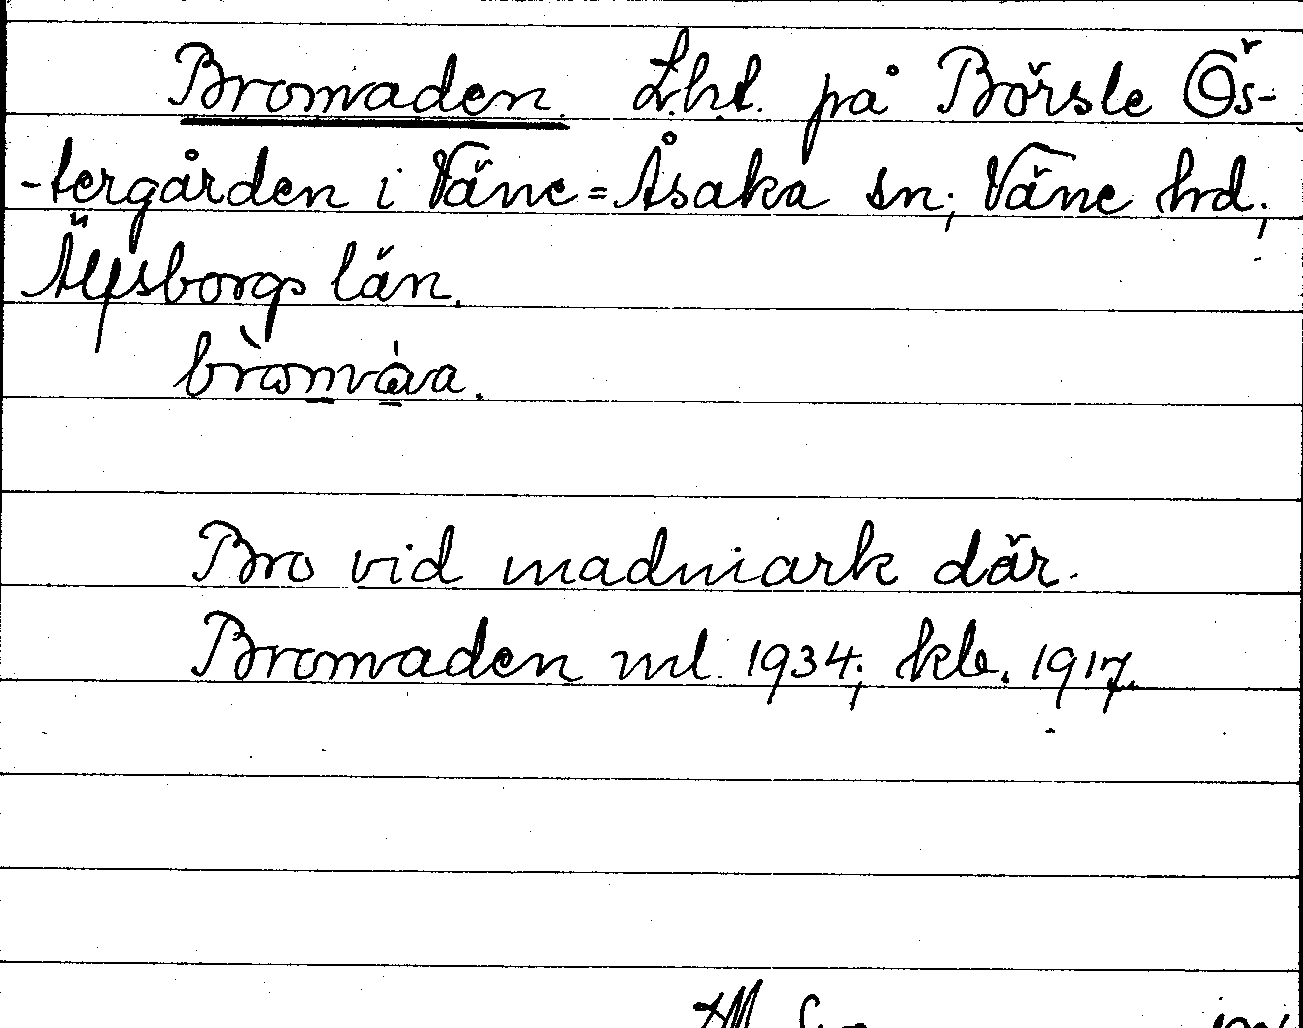 Bromaden. Lht. på Börsle Ös-
-tergården i Väne=Åsaka sn; Väne hrd;
Älfsborgs län.
Bro vid madmark där.
Bromaden ml. 1934; kle. 1917.